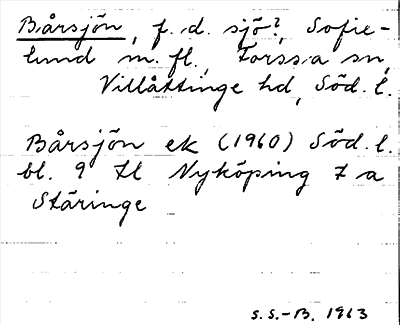 Bårsjön, f. d. sjö?, Sofie-
lund m. fl., Forssa sn,
Villåttinge hd, Söd. l.
Bårsjön ek (1960) Söd. l.
bl. 9 H Nyköping 7 a
Stäringe
S.S.-B. 1963